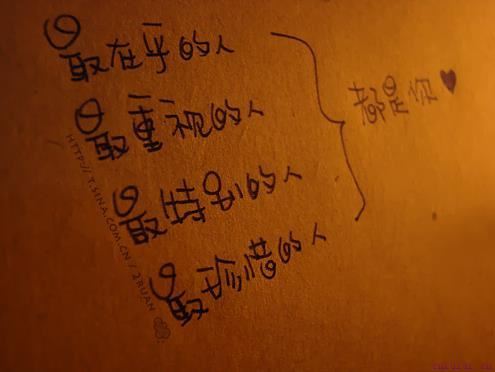 最在乎的人
最重视的人
最特别的人
最珍惜的人
都是你
HTTP://T.SINA.COM.CN/2RUAN